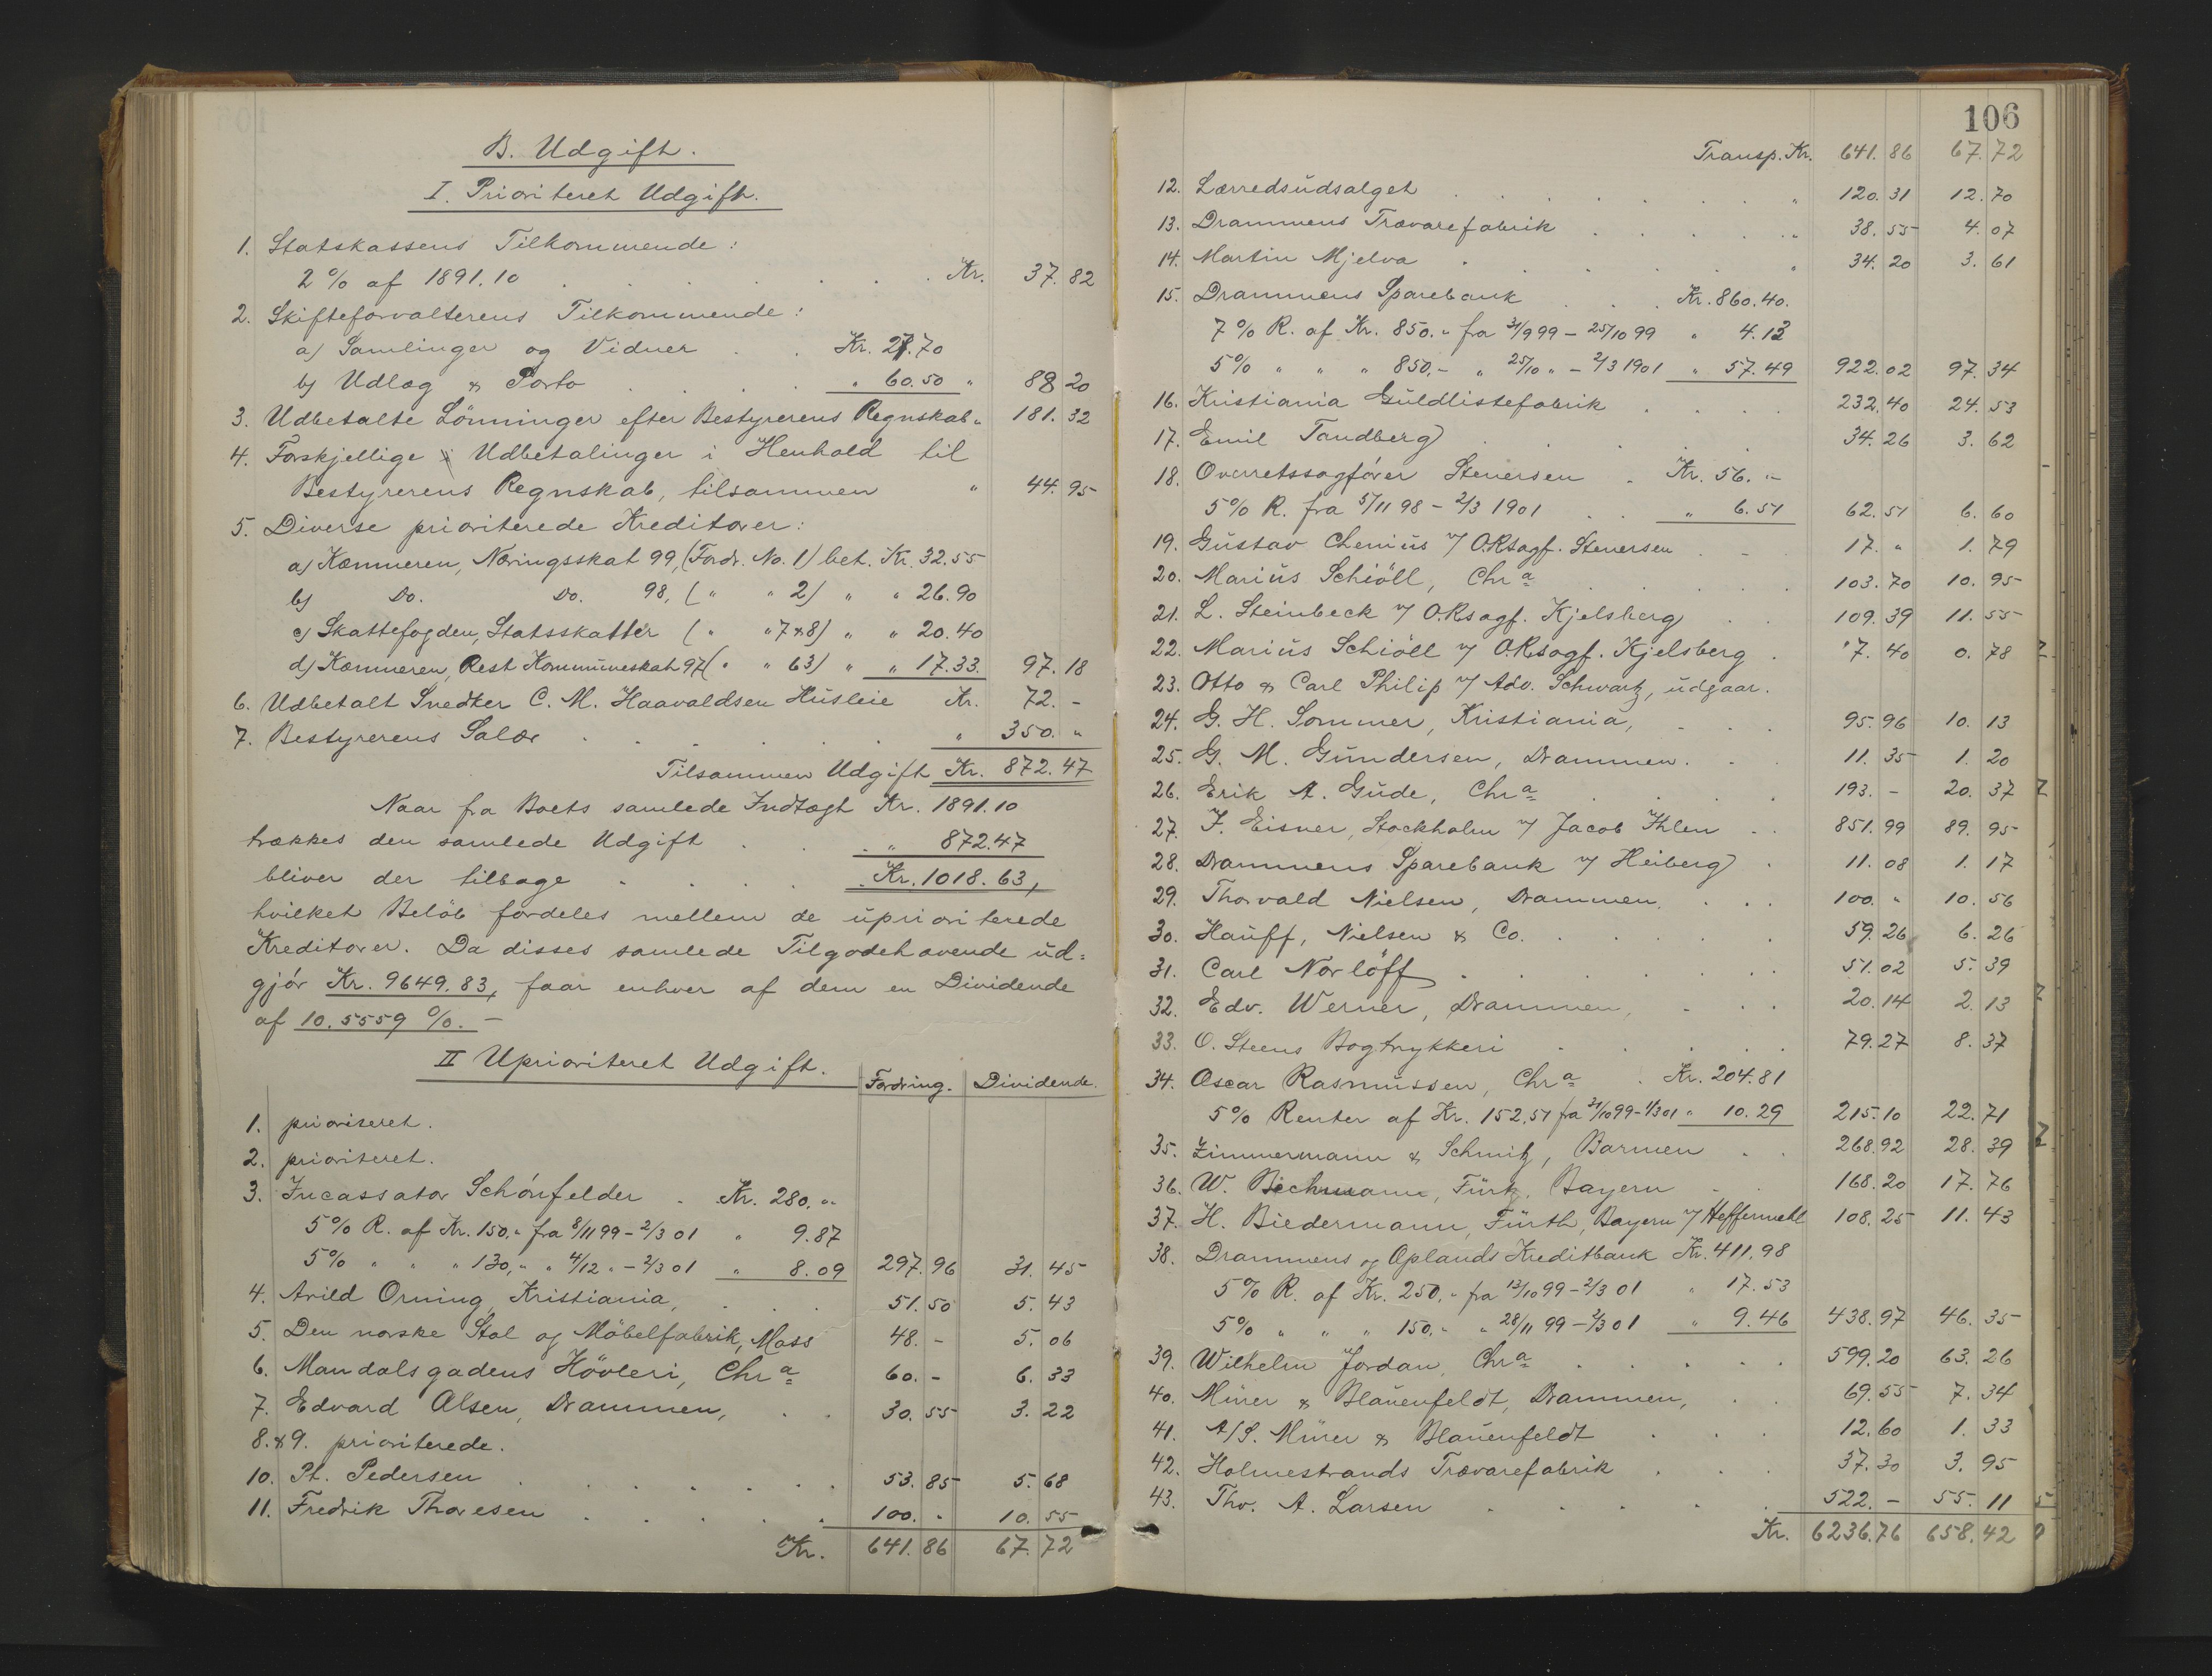 B. Udgift.
I. Prioriteret Udgift.
1. Statskassens Tilkommende:
2 % af 1891.10 . . . . . . . Kr. 37.82
2. Skifteforvalterens Tilkommende:
a) Samlinger og Vidner . . Kr. 27.70
b) Udlæg & Porto . . . . " 60.50 " 88 20
3. Udbetalte Lönninger efter Bestyrerens Regnskab " 181.32
4. Forskjellige Udbetalinger i Henhold til
Bestyrerens Regnskab, tilsammen " 44.95
5. Diverse prioriterede Kreditorer:
a) Kæmneren, Næringsskat 99, (Fordr. No. 1) bet. Kr. 32.55
b) Do. Do. 98, ( " " 2) " " 26.90
c) Skattefogden, Statsskatter ( " " 7&8) " " 20.40
d) Kæmneren, Rest Kommuneskat 97 ( " " 63) " " 17.33. 97.18
6. Udbetalt Snedker C. M. Haavaldsen Husleie Kr. 72.-
7. Bestyrerens Salær . . . . . . " 350. "
Tilsammen Udgift Kr. 872.47
Naar fra Boets samlede Indtægt Kr. 1891.10
trækkes den samlede Udgift . . . " 872.47
bliver der tilbage . . . . Kr. 1018.63,
hvilket Belöb fordeles mellem de uprioriterede
Kreditorer. Da disses samlede Tilgodehavende ud=
gjör Kr. 9649.83, faar enhver af dem en Dividende
af 10.5559 %. –
II Uprioriteret Udgift.
Fordring. Dividende.
1. prioriteret.
2. prioriteret.
3. Incassator Schönfelder . Kr. 280. "
5% R. af Kr. 150. " fra 8/11 99 – 2/3 01 " 9.87
5% " " " 130, " " 4/12 " – 2/3 01 " 8.09 297.96 31.45
4. Arild Orning, Kristiania, . . . 51.50 5.43
5. Den norske Stol og Möbelfabrik, Moss 48.- 5.06
6. Mandalsgadens Hövleri, Chra 60.- 6.33
7. Edvard Olsen, Drammen, . . 30.55 3.22
8.&9. prioriterede.
10. Pt. Pedersen . . . . . . . 53.85 5.68
11. Fredrik Thoresen . . . . . 100. " 10.55
Kr. 641.86 67.72
106
Transp. Kr. 641.86 67.72
12. Lærredsudsalget . . . . . . . " 120.31 12.70
13. Drammens Trævarefabrik . . . . . " 38.55 4.07
14. Martin Mjelva . . . . . . " 34.20 3.61
15. Drammens Sparebank . . . Kr. 860.40.
7% R. af Kr. 850. " fra 21/9 99 – 25/10 99 " 4.13
5% " " " 850.- " 25/10 " – 2/3 1901 " 57.49 922.02 97.34
16. Kristiania Guldlistefabrik . . . . 232.40 24.53
17. Emil Tandberg . . . . 34.26 3.62
18. Overretssagförer Stenersen . Kr. 56. "-
5% R. fra 5/11 98 – 2/3 1901 . . " 6.51 62.51 6.60
19. Gustav Chenius v/ O.Rsagf. Stenersen . - . 17. " 1.79
20. Marius Schiöll, Chra . . . . . . 103.70 10.95
21. L. Steinbeck v/ O.Rsagf. Kjelsberg . . 109.39 11.55
22. Marius Schiöll v/ O.Rsagf. Kjelsberg . 7.40 0.78
23. Otto & Carl Philip v/ Adv. Schwartz, udgaar.
24. G. H. Sommer, Kristiania, - . . 95.96 10.13
25. G. M. Gundersen, Drammen. . . 11.35 1.20
26. Erik A. Gude, Chra . . . . . 193.- 20.37
27. J. Eisner, Stockholm v/ Jacob Ihlen . . 851.99 89.95
28. Drammens Sparebank v/ Heiberg . 11.08 1.17
29. Thorvald Nielsen, Drammen, . . . 100. " 10.56
30. Hauff, Nielsen & Co. . . . . . 59.26 6.26
31. Carl Norlöff . . . . . . . 51.02 5.39
32. Edv. Werner, Drammen, - . . 20.14 2.13
33. O. Steens Bogtrykkeri . . . . . 79.27 8.37
34. Oscar Rasmussen, Chra . Kr. 204.81
5% Renter af Kr. 152,51 fra 21/10 99 – 1/3 01 " 10.29 215.10 22.71
35. Zimmermann & Schmitz, Barmen . . 268.92 28.39
36. W. Bechmann, Fürth, Bayern . . 168.20 17.76
37. H. Biedermann, Fürth, Bayern v/ Heffermehl 108.25 11.43
38. Drammens og Oplands Kreditbank Kr. 411.98
5% R. af Kr. 250. " fra 13/10 99 – 2/3 01 " 17.53
5% " " " 150. " " 28/11 99 – 2/3 01 " 9.46 438.97 46.35
39. Wilhelm Jordan, Chra . . . . . 599.20 63.26
40. Mürer & Blauenfeldt, Drammen, . . 69.55 7.34
41. A/S. Mürer & Blauenfeldt . . . 12.60 1.33
42. Holmestrands Trævarefabrik . . . 37.30 3.95
43. Thv. A. Larsen . . . . . . 522.- 55.11
Kr. 6236.76 658.42